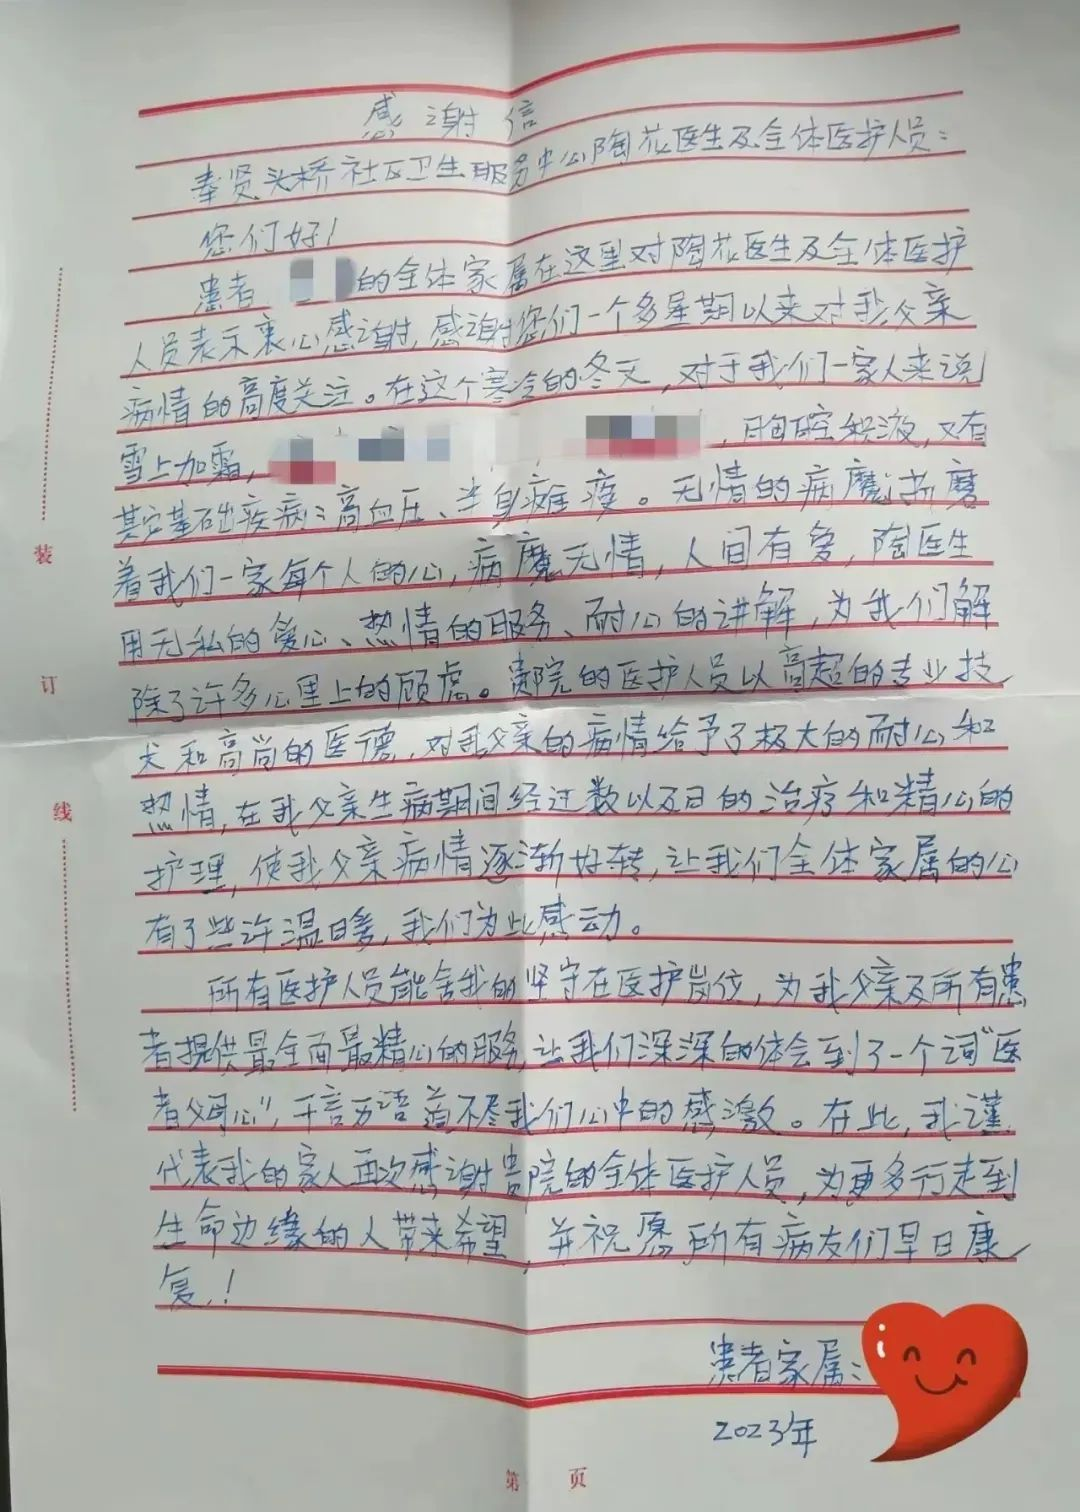 感谢信
奉贤头桥社区卫生服务中心陶花医生及全体医护人员：
您们好！
患者 的全体家属在这里对陶花医生及全体医护
人员表示衷心感谢，感谢您们一个多星期以来对我父亲
病情的高度关注。在这个寒冷的冬天，对于我们一家人来说
雪上加霜， ，胸腔积液，又有
其它基础疾病：高血压、半身瘫痪。无情的病魔折磨
着我们一家每个人的心，病魔无情，人间有爱，陶医生
用无私的爱心、热情的服务、耐心的讲解，为我们解
除了许多心里上的顾虑。贵院的医护人员以高超的专业技
术和高尚的医德，对我父亲的病情给予了极大的耐心和
热情，在我父亲生病期间经过数以及日的治疗和精心的
护理，使我父亲病情逐渐好转，让我们全体家属的心
有了些许温暖，我们为此感动。
所有医护人员能舍我的坚守在医护岗位，为我父亲及所有患
者提供最全面最精心的服务，让我们深深的体会到了一个词"医
者父母心"，千言万语道不尽我们心中的感激。在此，我谨
代表我的家人再次感谢贵院的全体医护人员，为更多行走到
生命边缘的人带来希望，并祝愿所有病友们早日康
复！
患者家属：
2023年
装
订
线
第 页